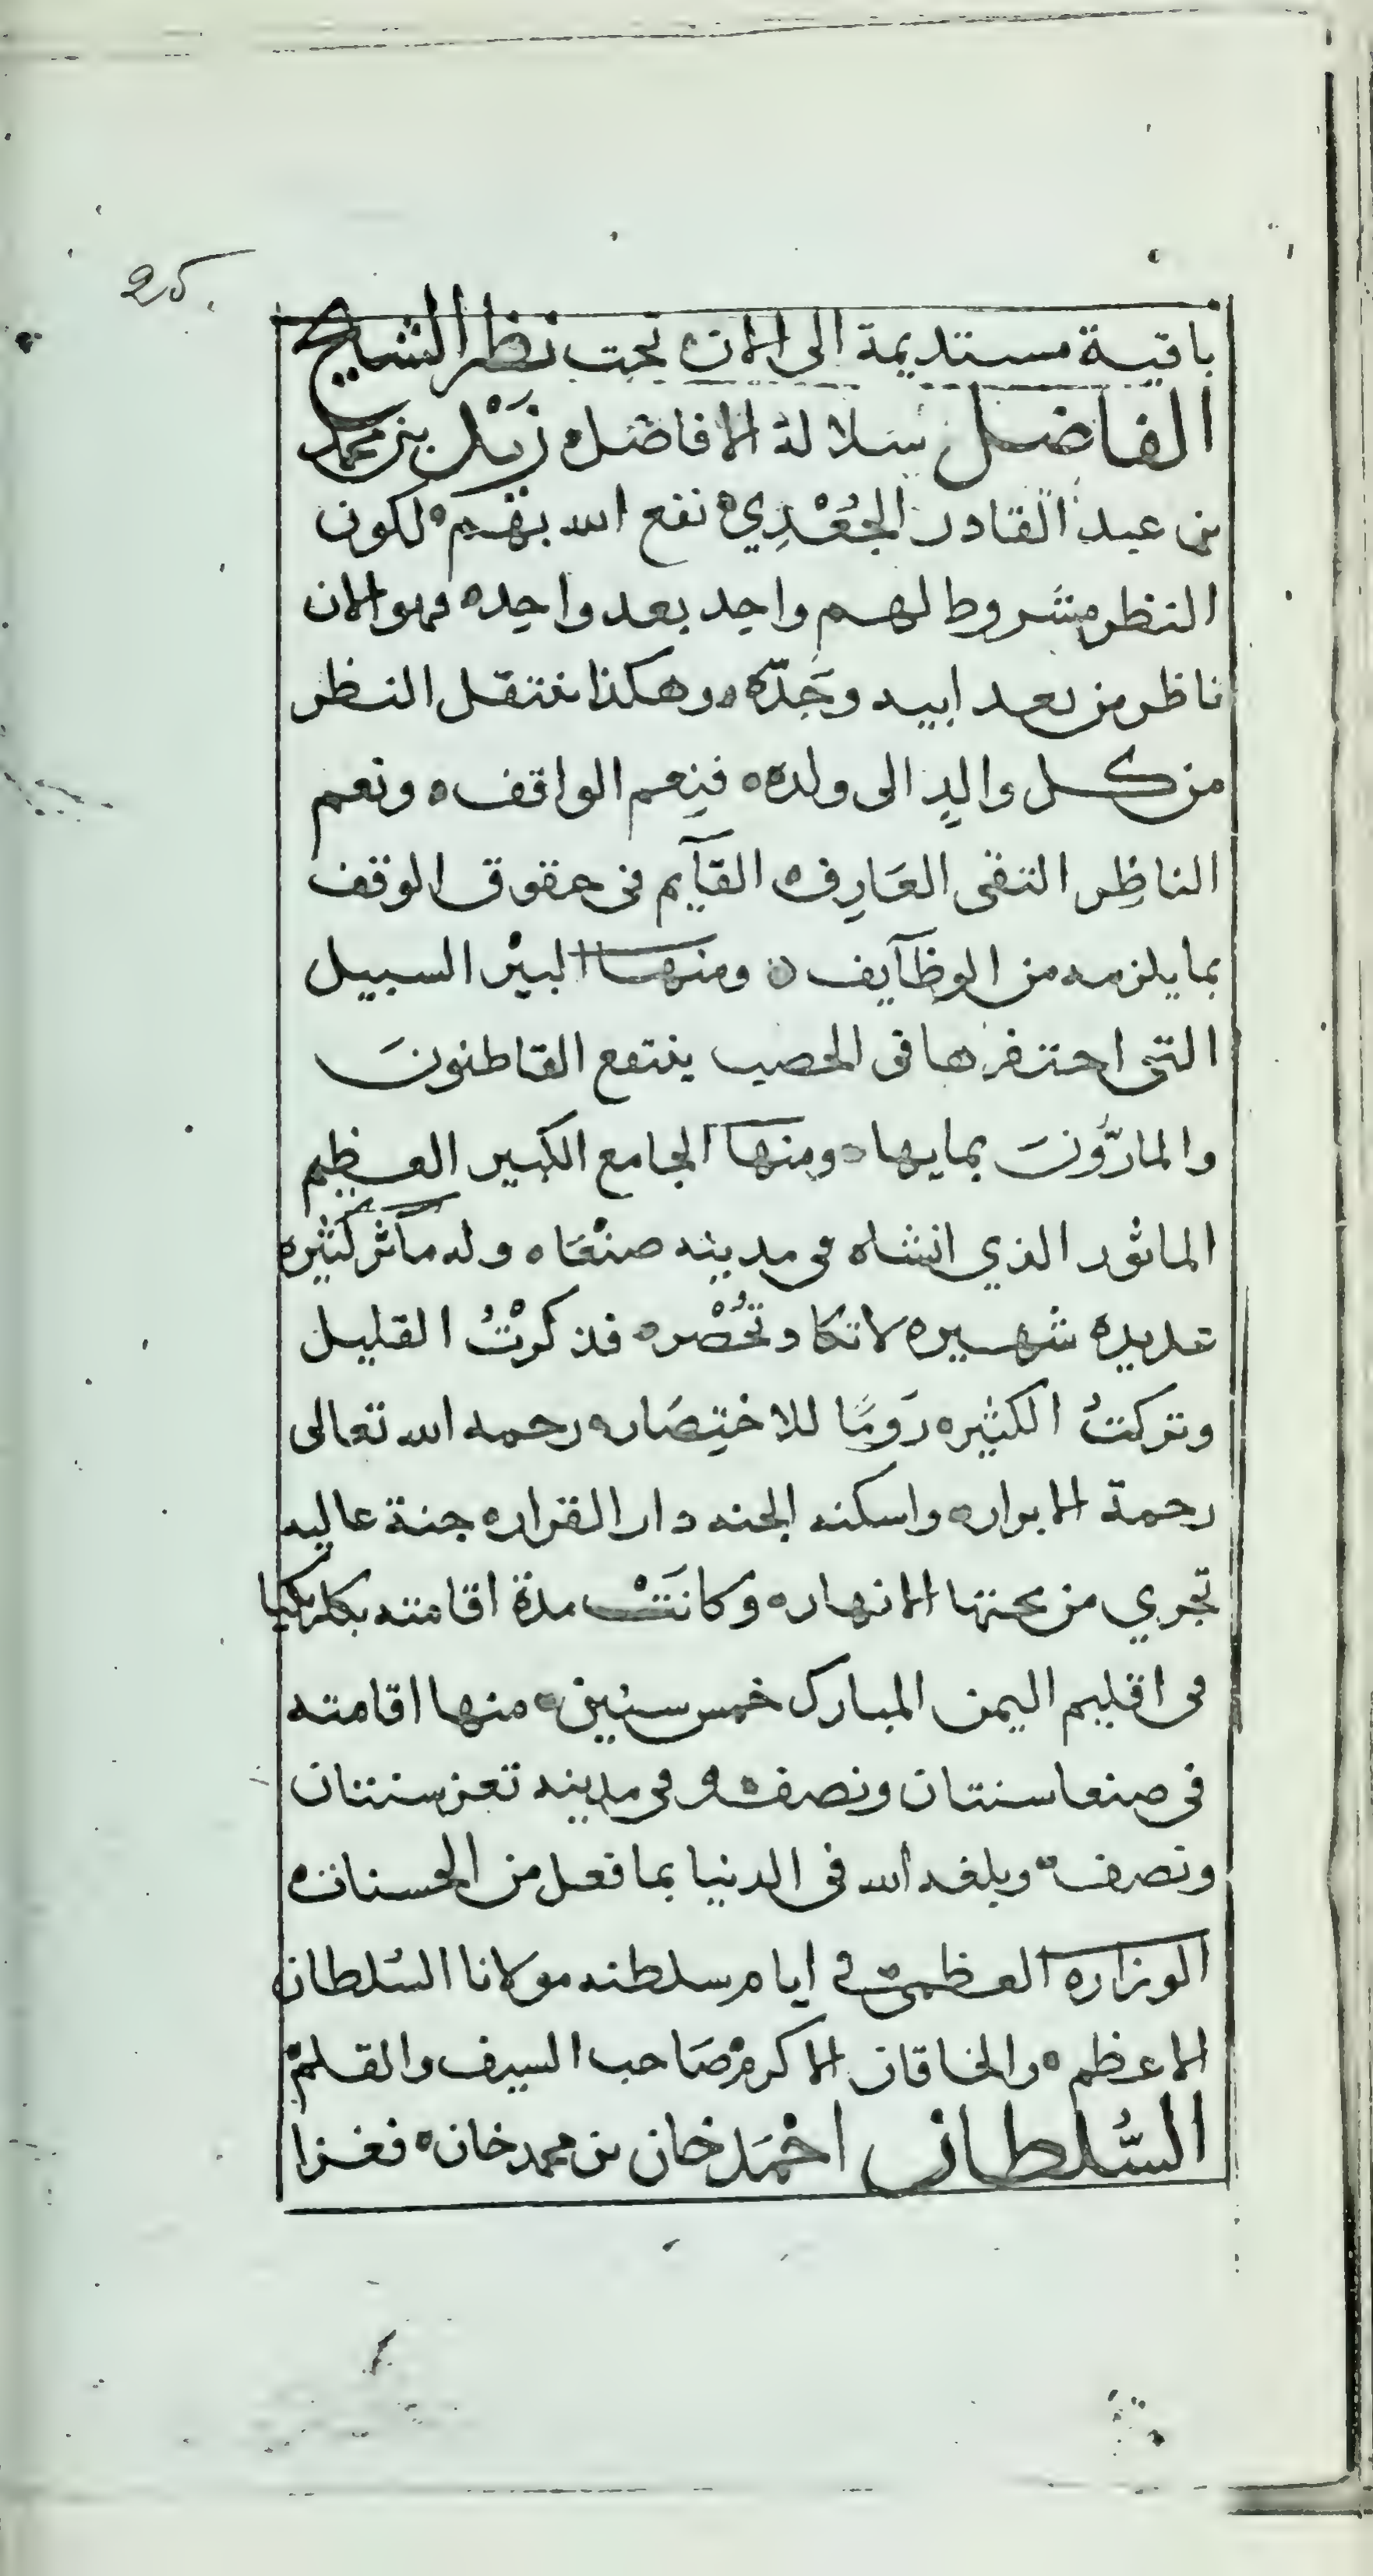 25.
باقية مستديمة الى الان تحت نظر الشيخ
الفاضل سلالة الافاضل زَيْد بن محمد
بن عبد القادر الجُعْدِي نفع الله بهم لكون
النظر مشروط لهم واحِد بعد واحِد فهو الان
ناظر من بعد ابيه وجَدّه وهكذا ينتقل النظر
من كل والِدٍ الى ولده فنِعم الواقف ونعم
الناظِر التقى العَارِف القآيم فى حقوق الوقف
بما يلزمه من الوظآيف ومنها البير السبيل
التى احتفرها فى الحصيب ينتفع القاطنونَ
والمارّونَ بمايها ومنها الجامع الكبير العظيم
الماثور الذي انشاه فى مدينه صنْعَا وله مآثر كثيره
عديده شهيره لا تكاد تُحْصَر فذكرْتُ القليل
وتركتُ الكثير رَومًا للاختِصَار رحمه الله تعالى
رحمة الابرار واسكنه الجنه دار القرار جنة عاليه
تجري من تحتها الانهار وكانَتْ مدة اقامته بكلربكيا
فى اقليم اليمن المبارك خمس سنين منها اقامته
فى صنعا سنتان ونصف وفى مدينه تعز سنتان
ونصف وبلغه الله فى الدنيا بما فعل من الحسنات
الوزاره العظمى في ايام سلطنه مولانا السُلطان
الاعظم والخاقان الاكرم صَاحب السيف والقلم
السُّلطان احْمَد خان بن محمد خان فغزا